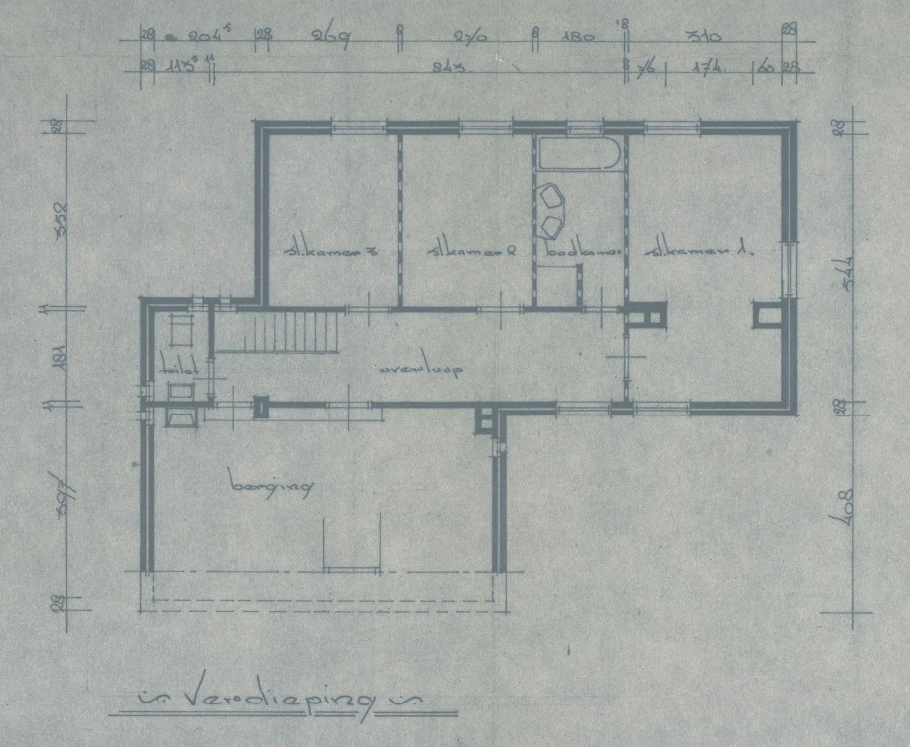 28 204⁵ 28 269 8 270 8 180 18 310 28
28 113⁵ 11 843 8 76 174 60 28
28 352 11 181 11 397 28
28 544 28 408
sl.kamer 3 sl.kamer 2 badkamer sl.kamer 1.
toilet overloop
berging
Verdieping